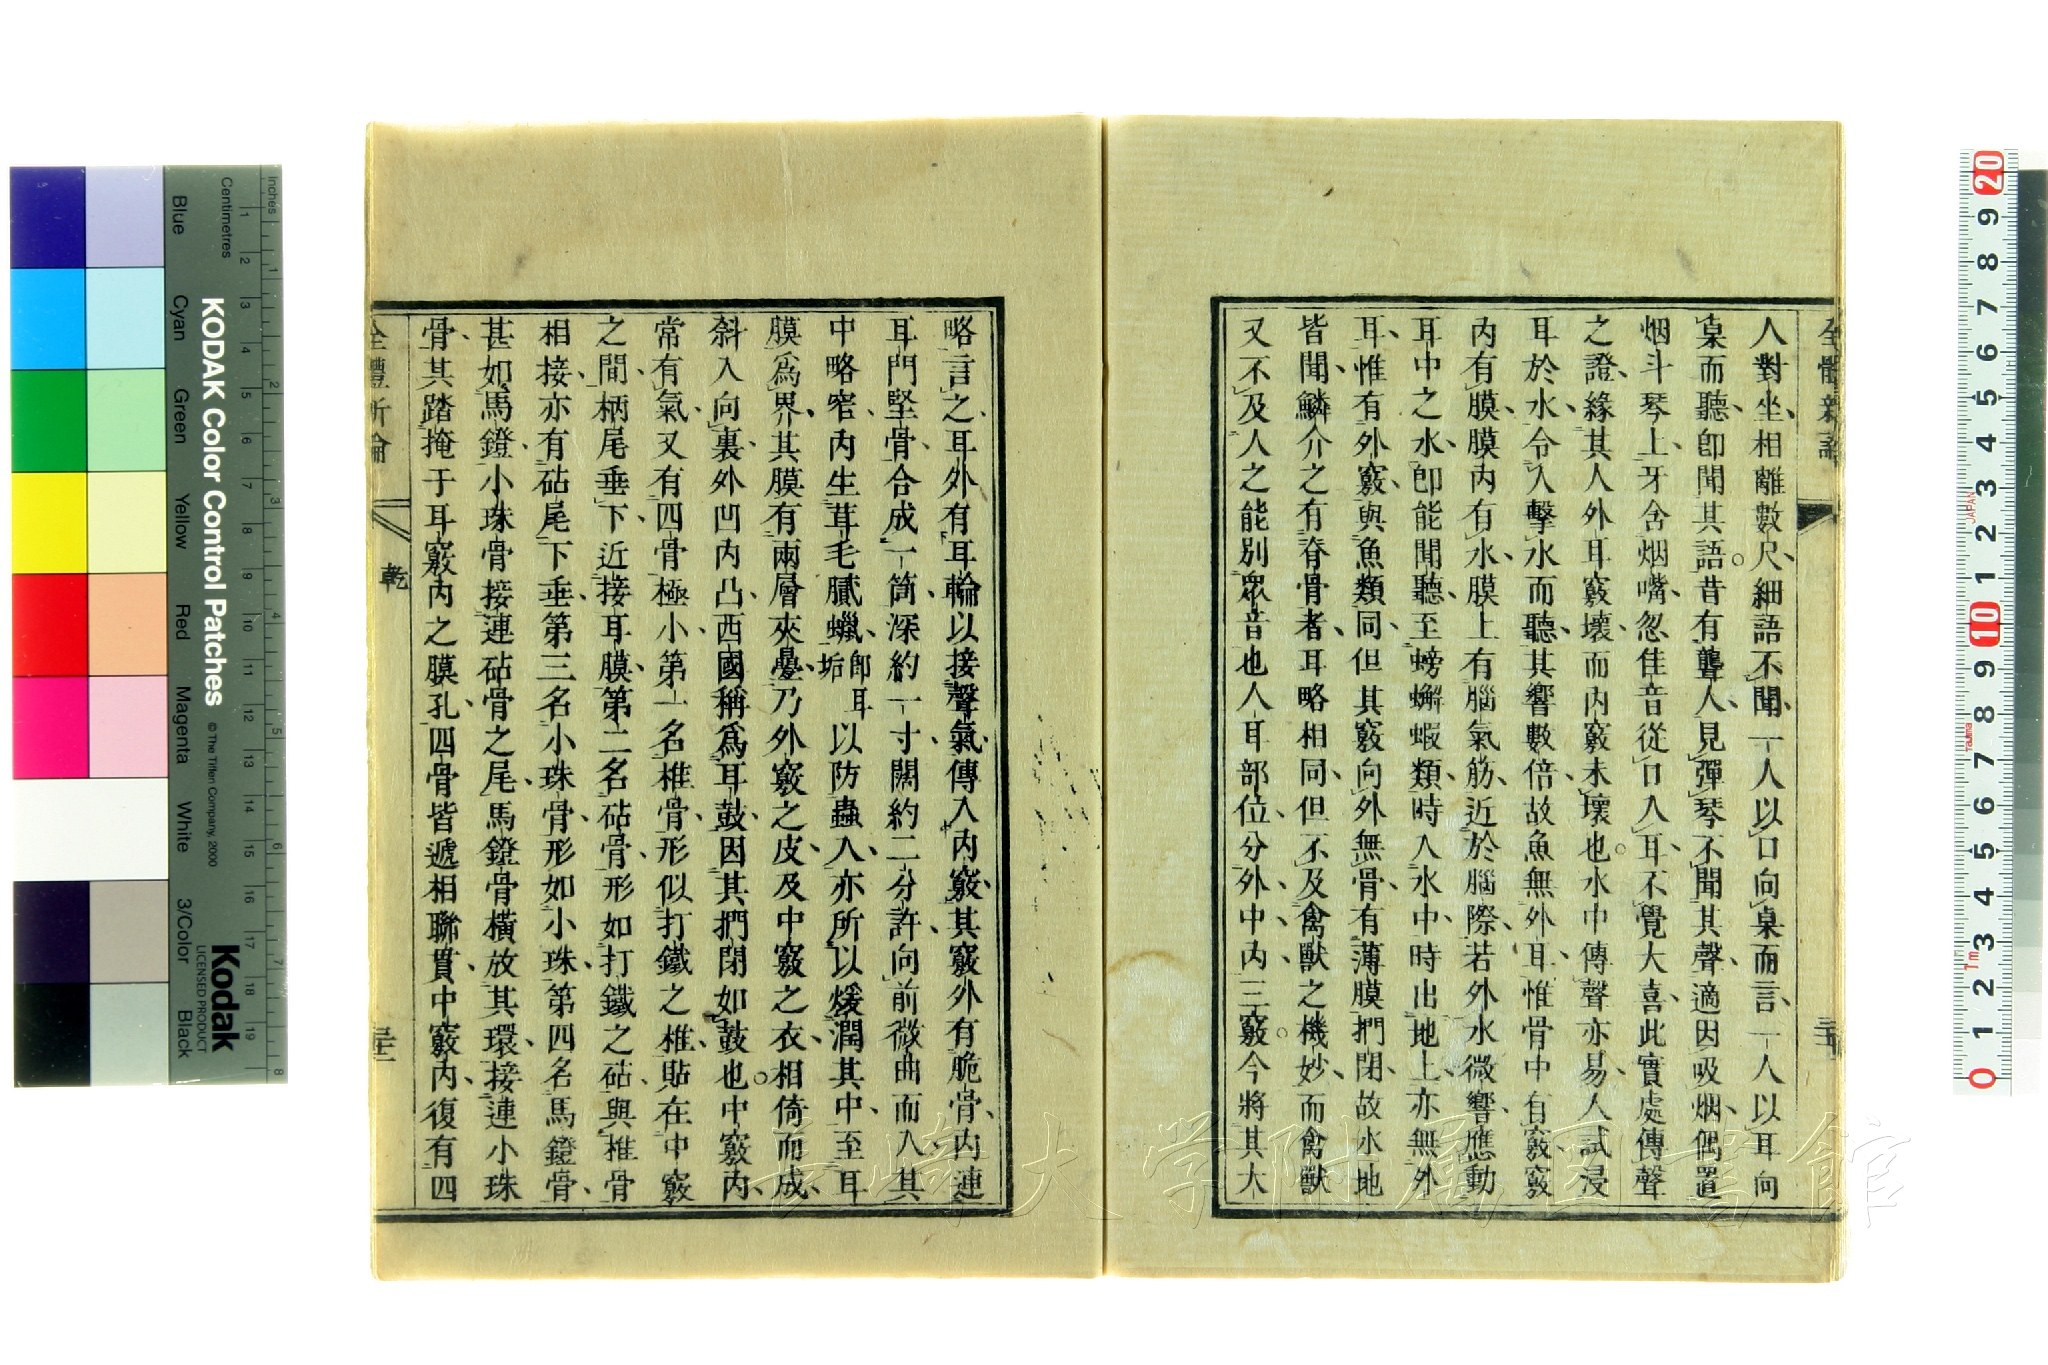 全體新論
人對坐、相離數尺、細語不聞、一人以口向桌而言、一人以耳向
桌而聽、卽聞其語。昔有聾人、見彈琴不聞其聲、適因吸烟、偶置
烟斗琴上、牙含烟嘴、忽佳音從口入耳、不覺大喜、此實處傳聲
之證、緣其人外耳竅壞、而內竅未壞也。水中傳聲亦易、人試浸
耳於水、令人擊水而聽、其響數倍、故魚無外耳、惟骨中有竅、竅
內有膜、膜內有水、膜上有腦氣筋、近於腦際、若外水微響應動
耳中之水、卽能聞聽、至螃蠏蝦類、時入水中、時出地上、亦無外
耳、惟有外竅、與魚類同、但其竅向外無骨、有薄膜捫閉、故水地
皆聞、鱗介之有脊骨者、耳略相同、但不及禽獸之機妙、而禽獸
又不及人之能別眾音也、人耳部位、分外、中、內三竅。今將其大
略言之、耳外有耳輪、以接聲氣、傳入內竅、其竅外有脆骨、內連
耳門堅骨合成、一筒深約一寸、闊約二分許、向前微曲而入、其
中略窄、內生茸毛膩蠟、卽耳垢以防蟲入、亦所以煖潤其中、至耳
膜爲界、其膜有兩層夾疊、乃外竅之皮及中竅之衣相倚而成、
斜入向裏、外凹內凸、西國稱爲耳鼓、因其捫閉如鼓也。中竅內、
常有氣、又有四骨極小、第一名椎骨、形似打鐵之椎、貼在中竅
之間、柄尾垂下、近接耳膜、第二名砧骨、形如打鐵之砧、與椎骨
相接、亦有砧尾下垂、第三名小珠骨、形如小珠、第四名馬鐙骨、
甚如馬鐙、小珠骨接連砧骨之尾、馬鐙骨橫放其環、接連小珠
骨、其踏掩于耳竅內之膜孔、四骨皆遞相聯貫、中竅內、復有四
全體新論
乾
長崎大学附属図書館
KODAK Color Control Patches
© The Tiffen Company, 2000
Kodak
LICENSED PRODUCT
Inches
Centimetres
Blue
Cyan
Green
Yellow
Red
Magenta
White
3/Color
Black
1 2 3 4 5 6 7 8
1 2 3 4 5 6 7 8 9 10 11 12 13 14 15 16 17 18 19
20 9 8 7 6 5 4 3 2 1 10 9 8 7 6 5 4 3 2 1 0
JAPAN
Tajima